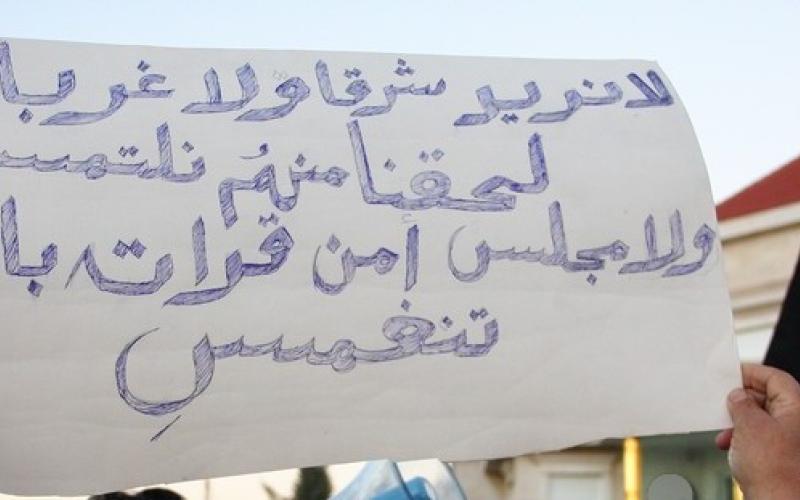 لا نريد شرقا ولا غربا
لحقنا منهُم نلتمس
ولا مجلس أمن قراته با
تنغمسِ